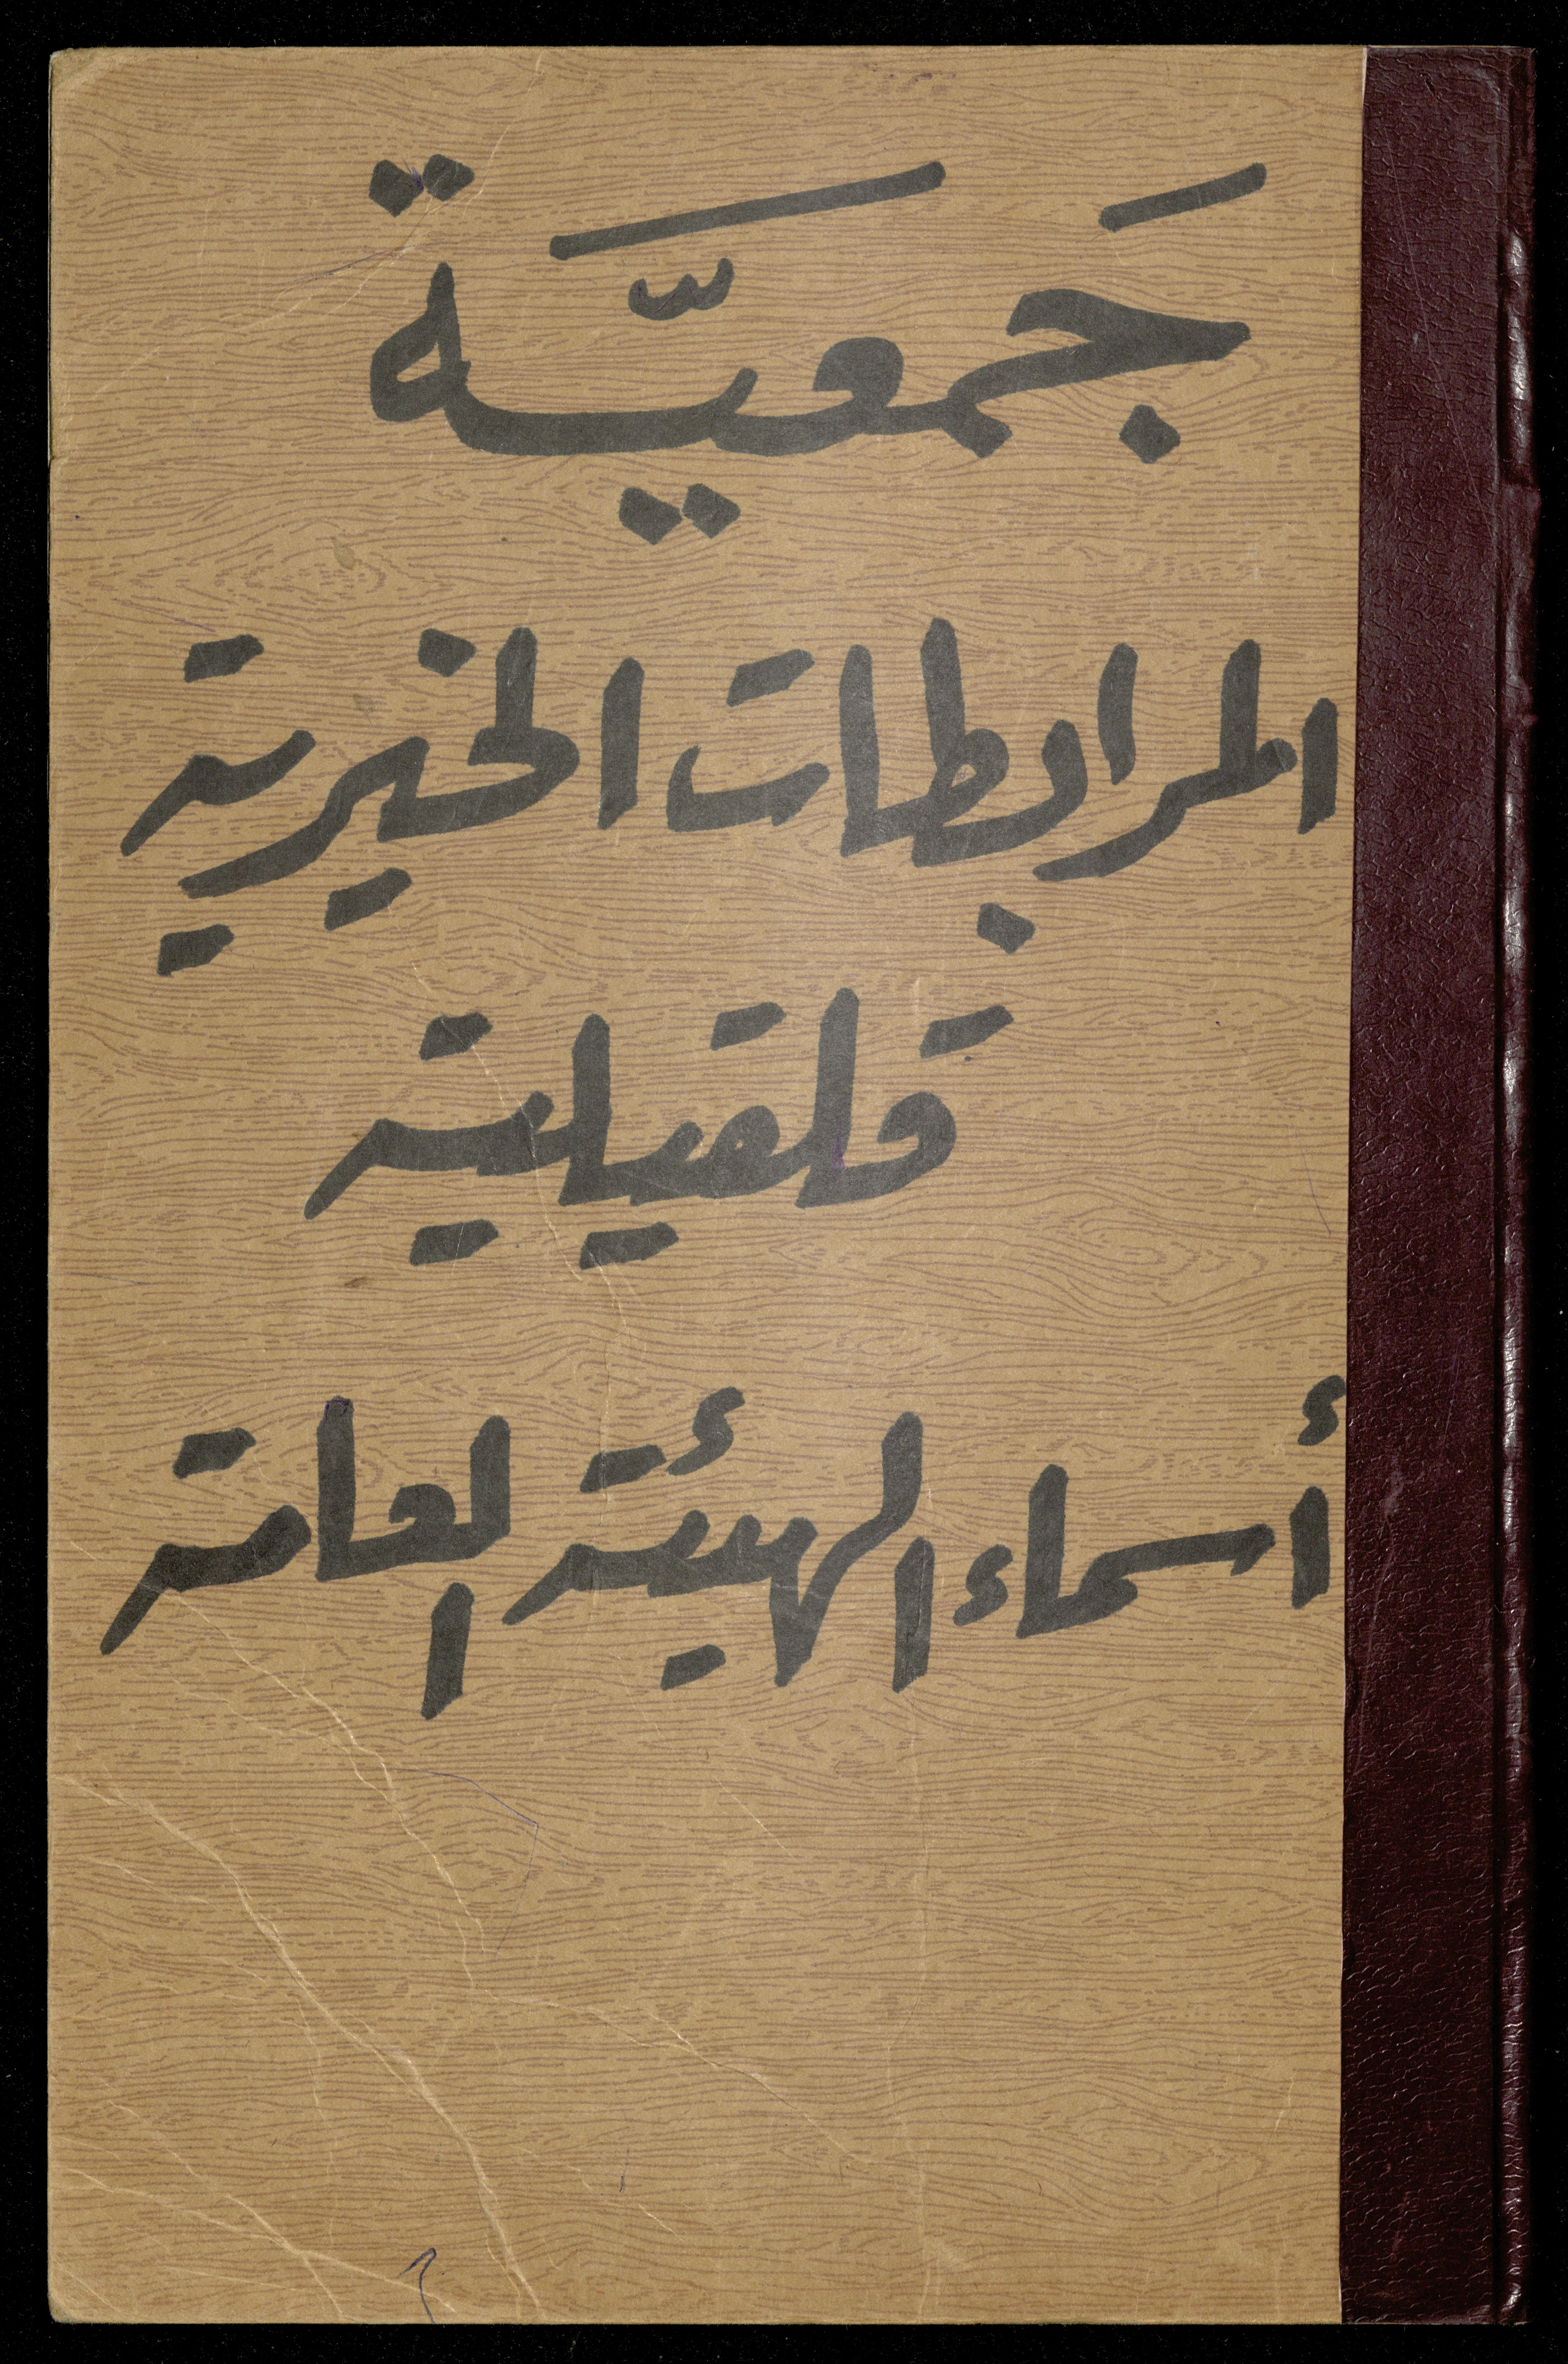 جَمعيَّة
المرابطات الخيرية
قلقيلية
أسماء الهيئة العامة